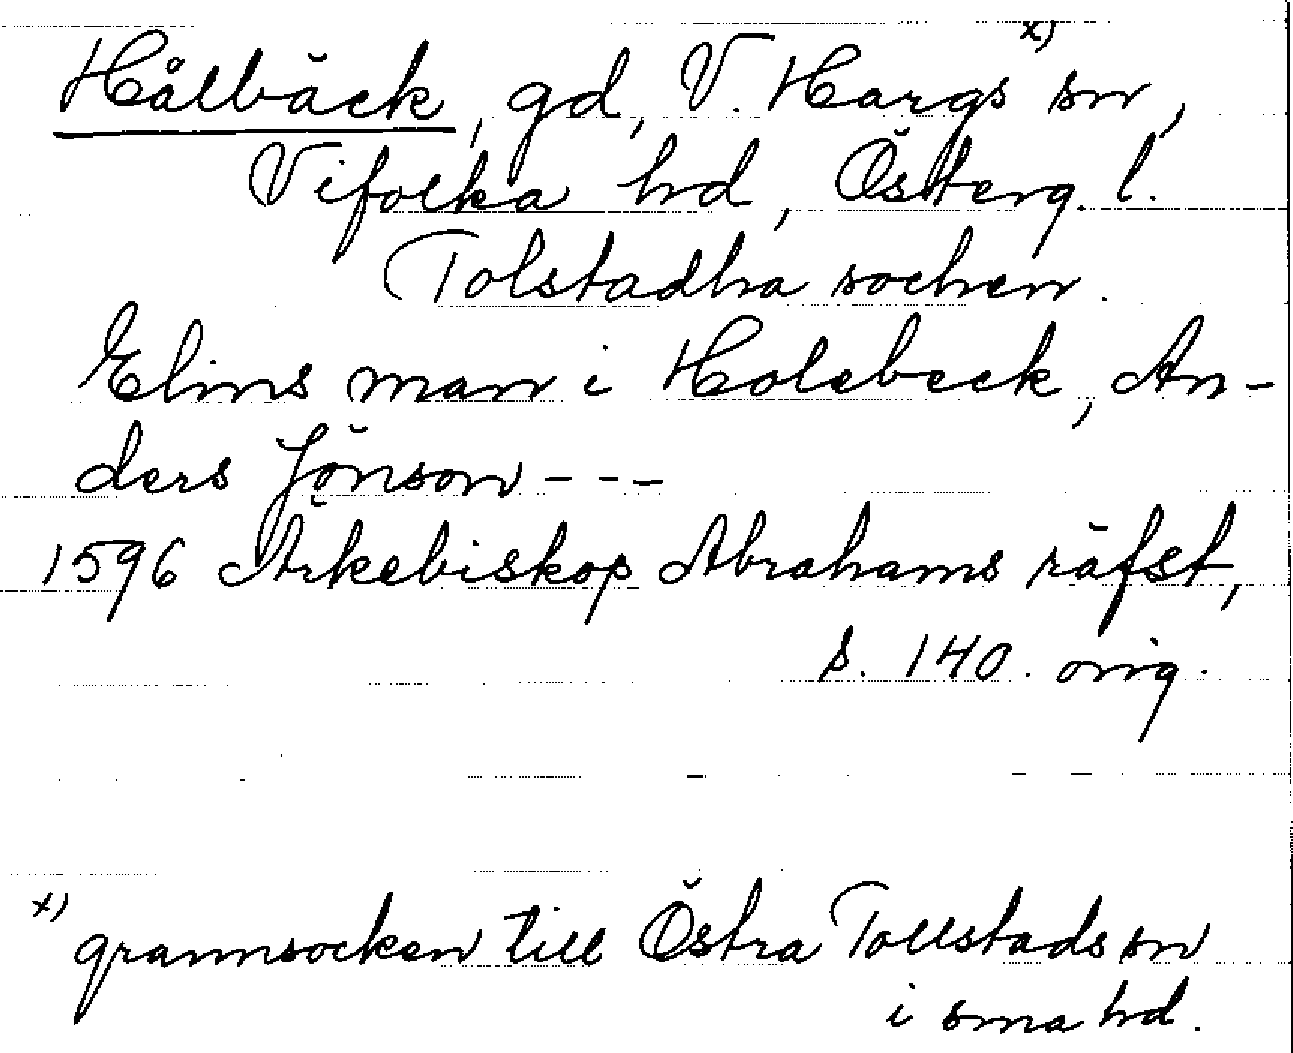 Hålbäck, gd, V. Hargs sn, x)
Vifolka hd, Österg. l.
Tolstadha sochen.
Elins man i Holebeck, An-
ders Jönson ---
1596 Ärkebiskop Abrahams räfst,
s. 140. orig.
x) grannsocken till Östra Tollstads sn
i sma hd.